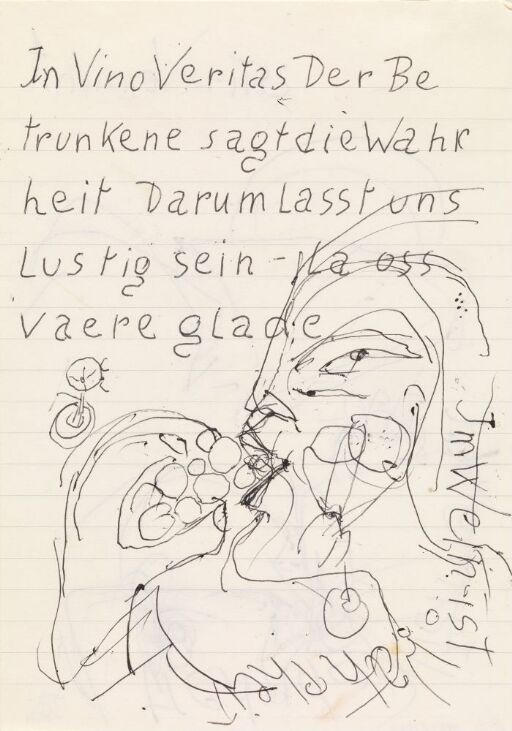 In Vino Veritas Der Be
trunkene sagt die Wahr
heit Darum Lasst uns
Lustig sein - la oss
vaere glade
Im Wein-ist
Wahrheit